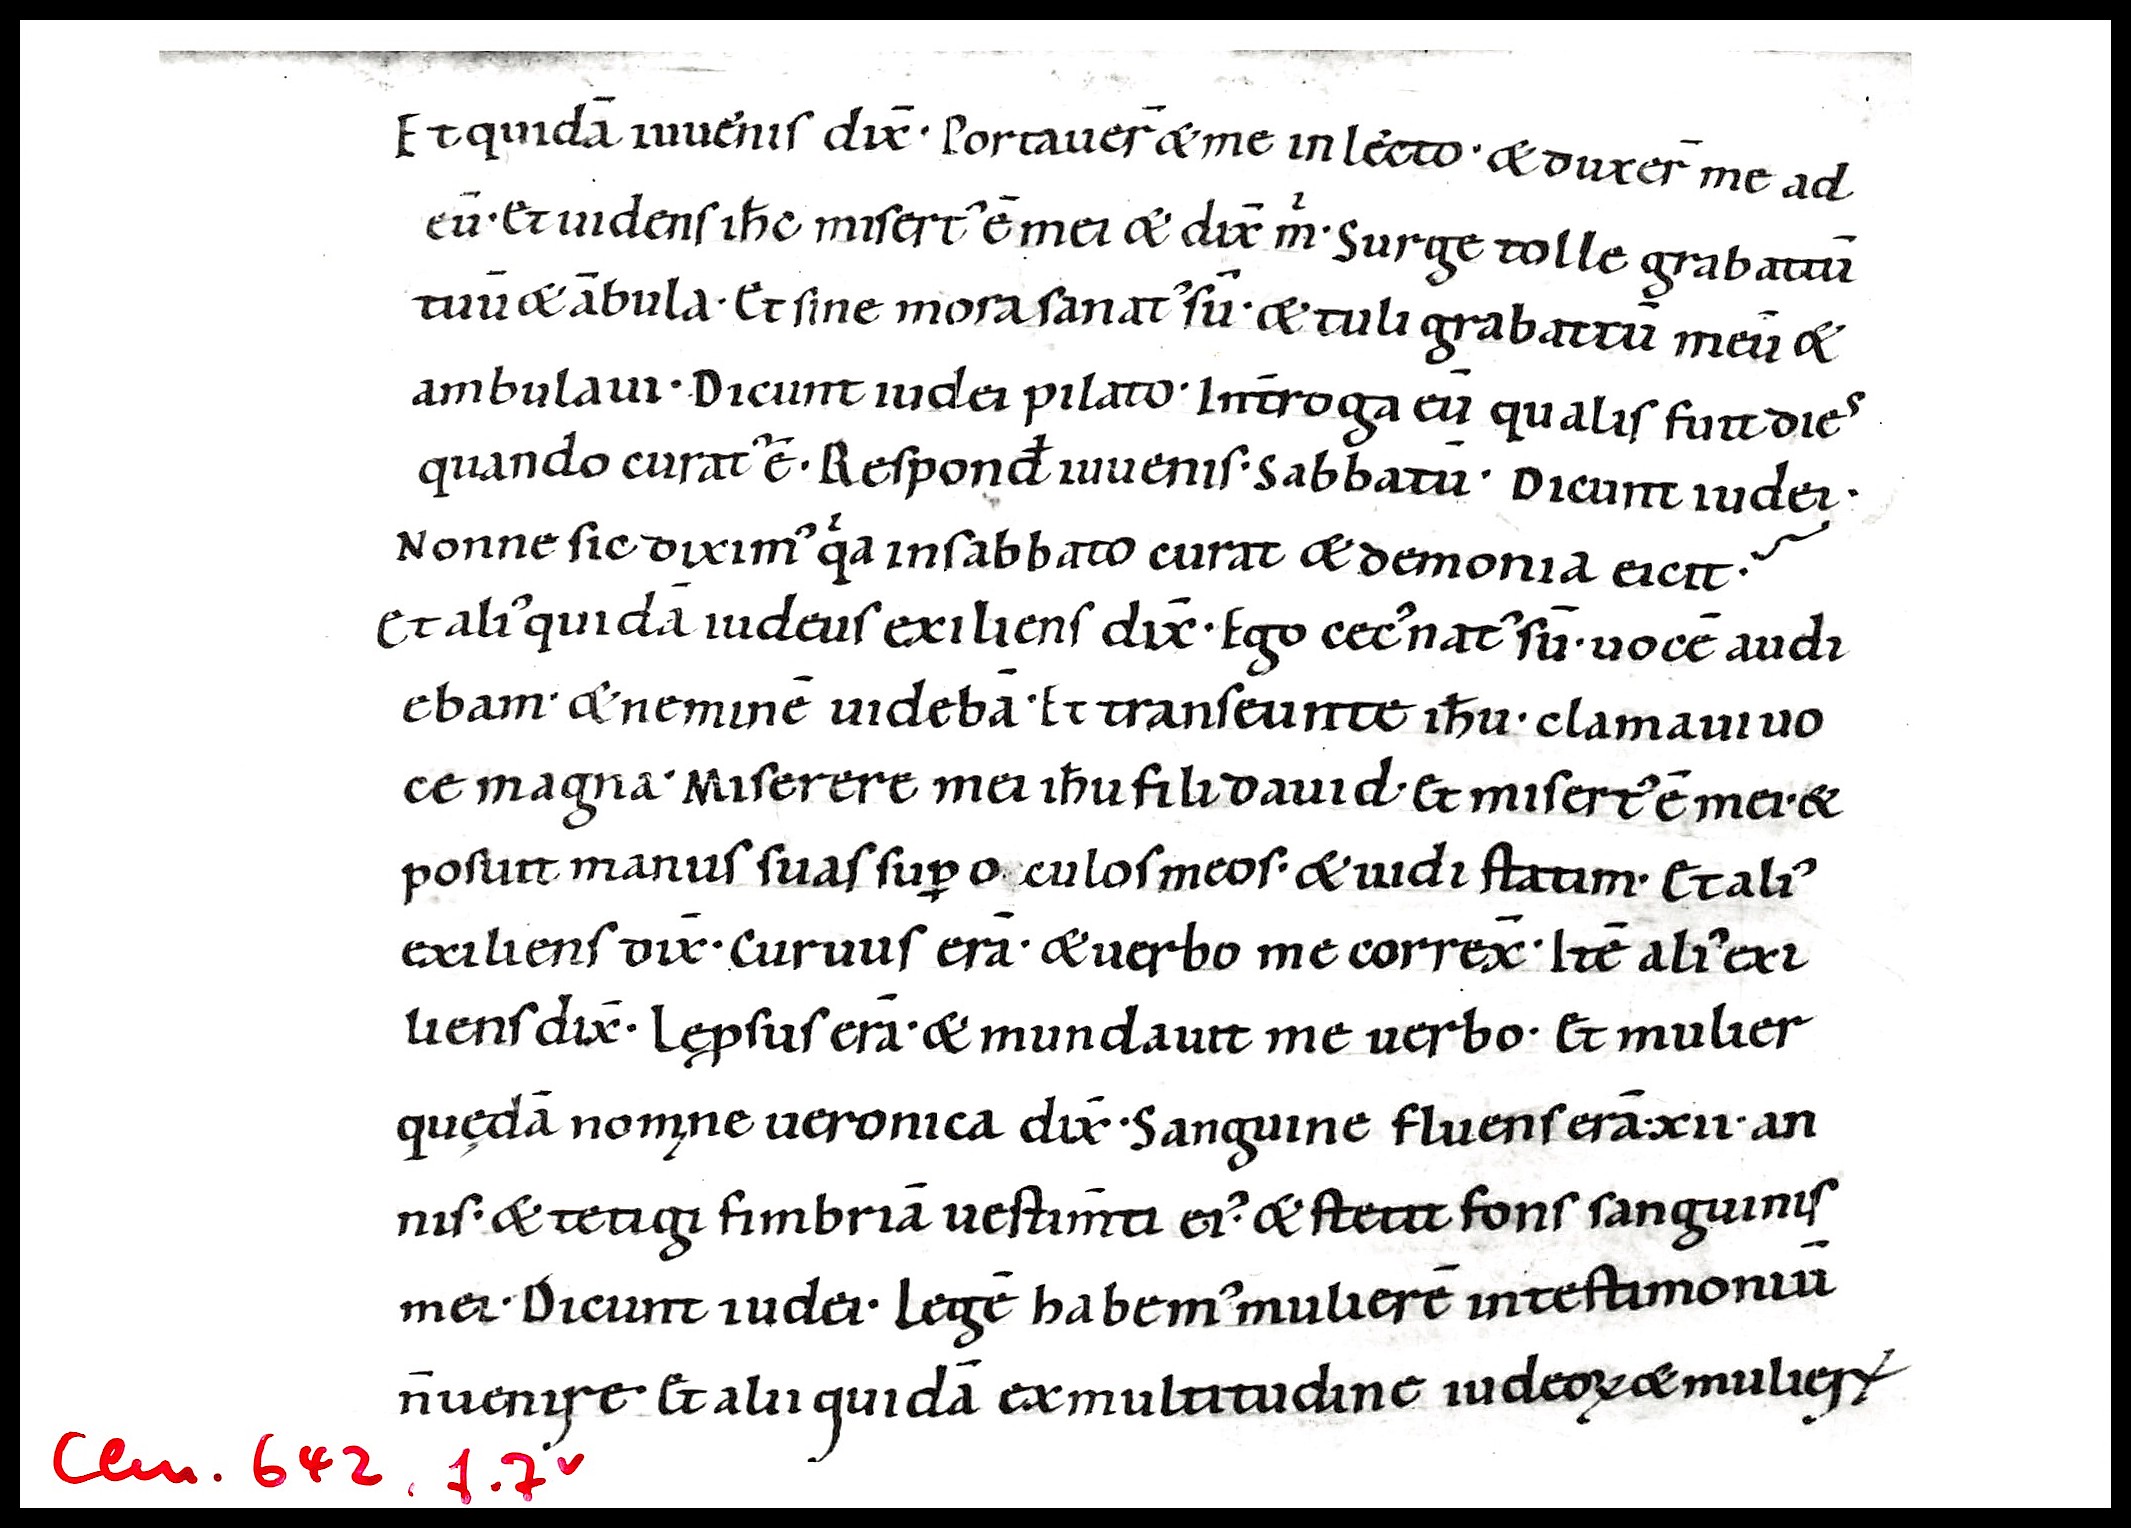 Et quidā iuuenis dix̄· Portauer̄ & me in lecto· & duxer̄ me ad
eū· Et uidens ih̄c misert᾿ ē mei & dix̄ mⁱ· Surge tolle grabattū
tuū & ābula· Et sine mora sanat᾿ sū· & tuli grabattū meū &
ambulaui· Dicunt iudei pilato· Int̄roga eū qualis fuit dies
quando curat᾿ ē· Respond̄ iuuenis· Sabbatū· Dicunt iudei·
Nonne sic dixim᾿ qⁱa in sabbato curat & demonia eicit·
Et ali᾿ quidā iudeus exiliens dix̄· Ego cec᾿ nat᾿ sū· uocē audi
ebam· & neminē uidebā· Et transeunte ih̄u· clamaui uo
ce magna· Miserere mei ih̄u fili dauid· Et misert᾿ ē mei· &
posuit manus suas sup̲ oculos meos· & uidi statim· Et ali᾿
exiliens dix̄· Curuus erā· & uerbo me correx̄· Itē ali᾿ exi
liens dix̄· Lępsus erā· & mundauit me uerbo· Et mulier
quędā nomine ueronica dix̄· Sanguine fluens erā· xii· an
nis· & tetigi fimbriā uestim̄ti ei᾿ & stetit fons sanguinis
mei· Dicunt iudei· Legē habem᾿ mulierē in testimoniū
n̄ uenire· Et alii quidā ex multitudine iudeoꝝ & mulierꝝ
Clm. 642, f. 7v